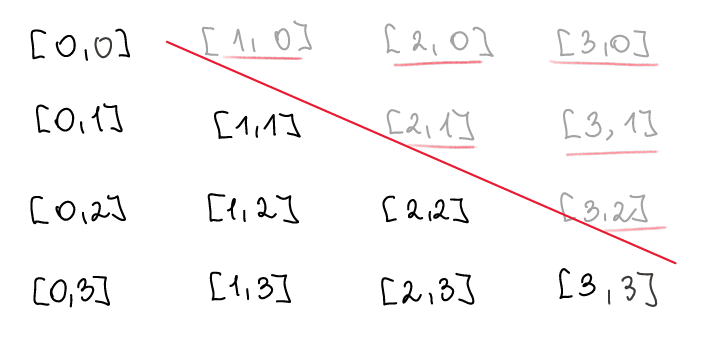 [0,0] [1,0] [2,0] [3,0]
[0,1] [1,1] [2,1] [3,1]
[0,2] [1,2] [2,2] [3,2]
[0,3] [1,3] [2,3] [3,3]